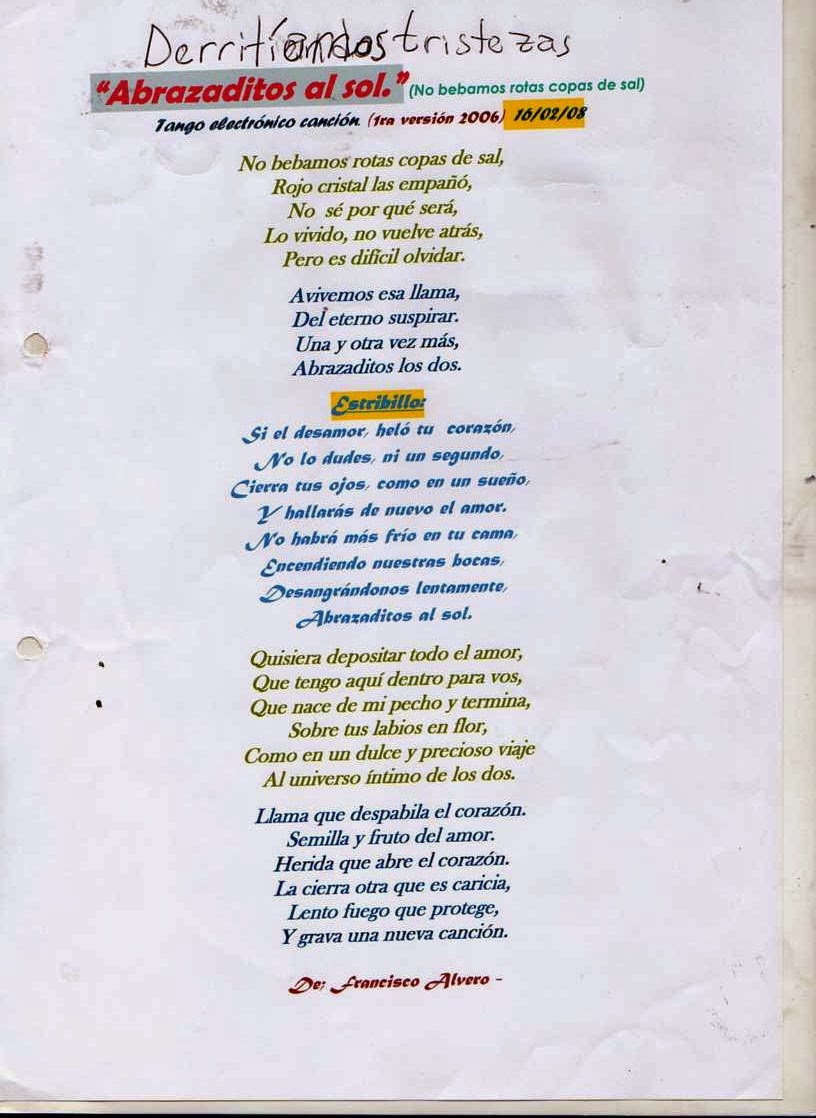 tristezas
“Abrazaditos al sol.” (No bebamos rotas copas de sal)
Tango electrónico canción (1ra versión 2006) 16/02/08
No bebamos rotas copas de sal,
Rojo cristal las empañó,
No sé por qué será,
Lo vivido, no vuelve atrás,
Pero es difícil olvidar.
Avivemos esa llama,
Del eterno suspirar.
Una y otra vez más,
Abrazaditos los dos.
Estribillo:
Si el desamor, heló tu corazón,
No lo dudes, ni un segundo,
Cierra tus ojos, como en un sueño,
Y hallarás de nuevo el amor.
No habrá más frío en tu cama,
Encendiendo nuestras bocas,
Desangrándonos lentamente,
Abrazaditos al sol.
Quisiera depositar todo el amor,
Que tengo aquí dentro para vos,
Que nace de mi pecho y termina,
Sobre tus labios en flor,
Como en un dulce y precioso viaje
Al universo íntimo de los dos.
Llama que despabila el corazón.
Semilla y fruto del amor.
Herida que abre el corazón.
La cierra otra que es caricia,
Lento fuego que protege,
Y grava una nueva canción.
De; Francisco Alvero -